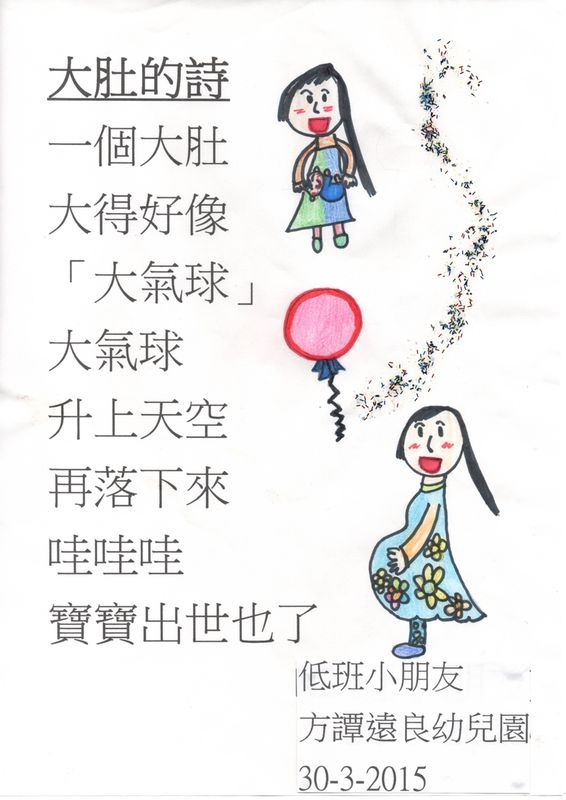 大肚的詩
一個大肚
大得好像
「大氣球」
大氣球
升上天空
再落下來
哇哇哇
寶寶出世也了
低班小朋友
方譚遠良幼兒園
30-3-2015